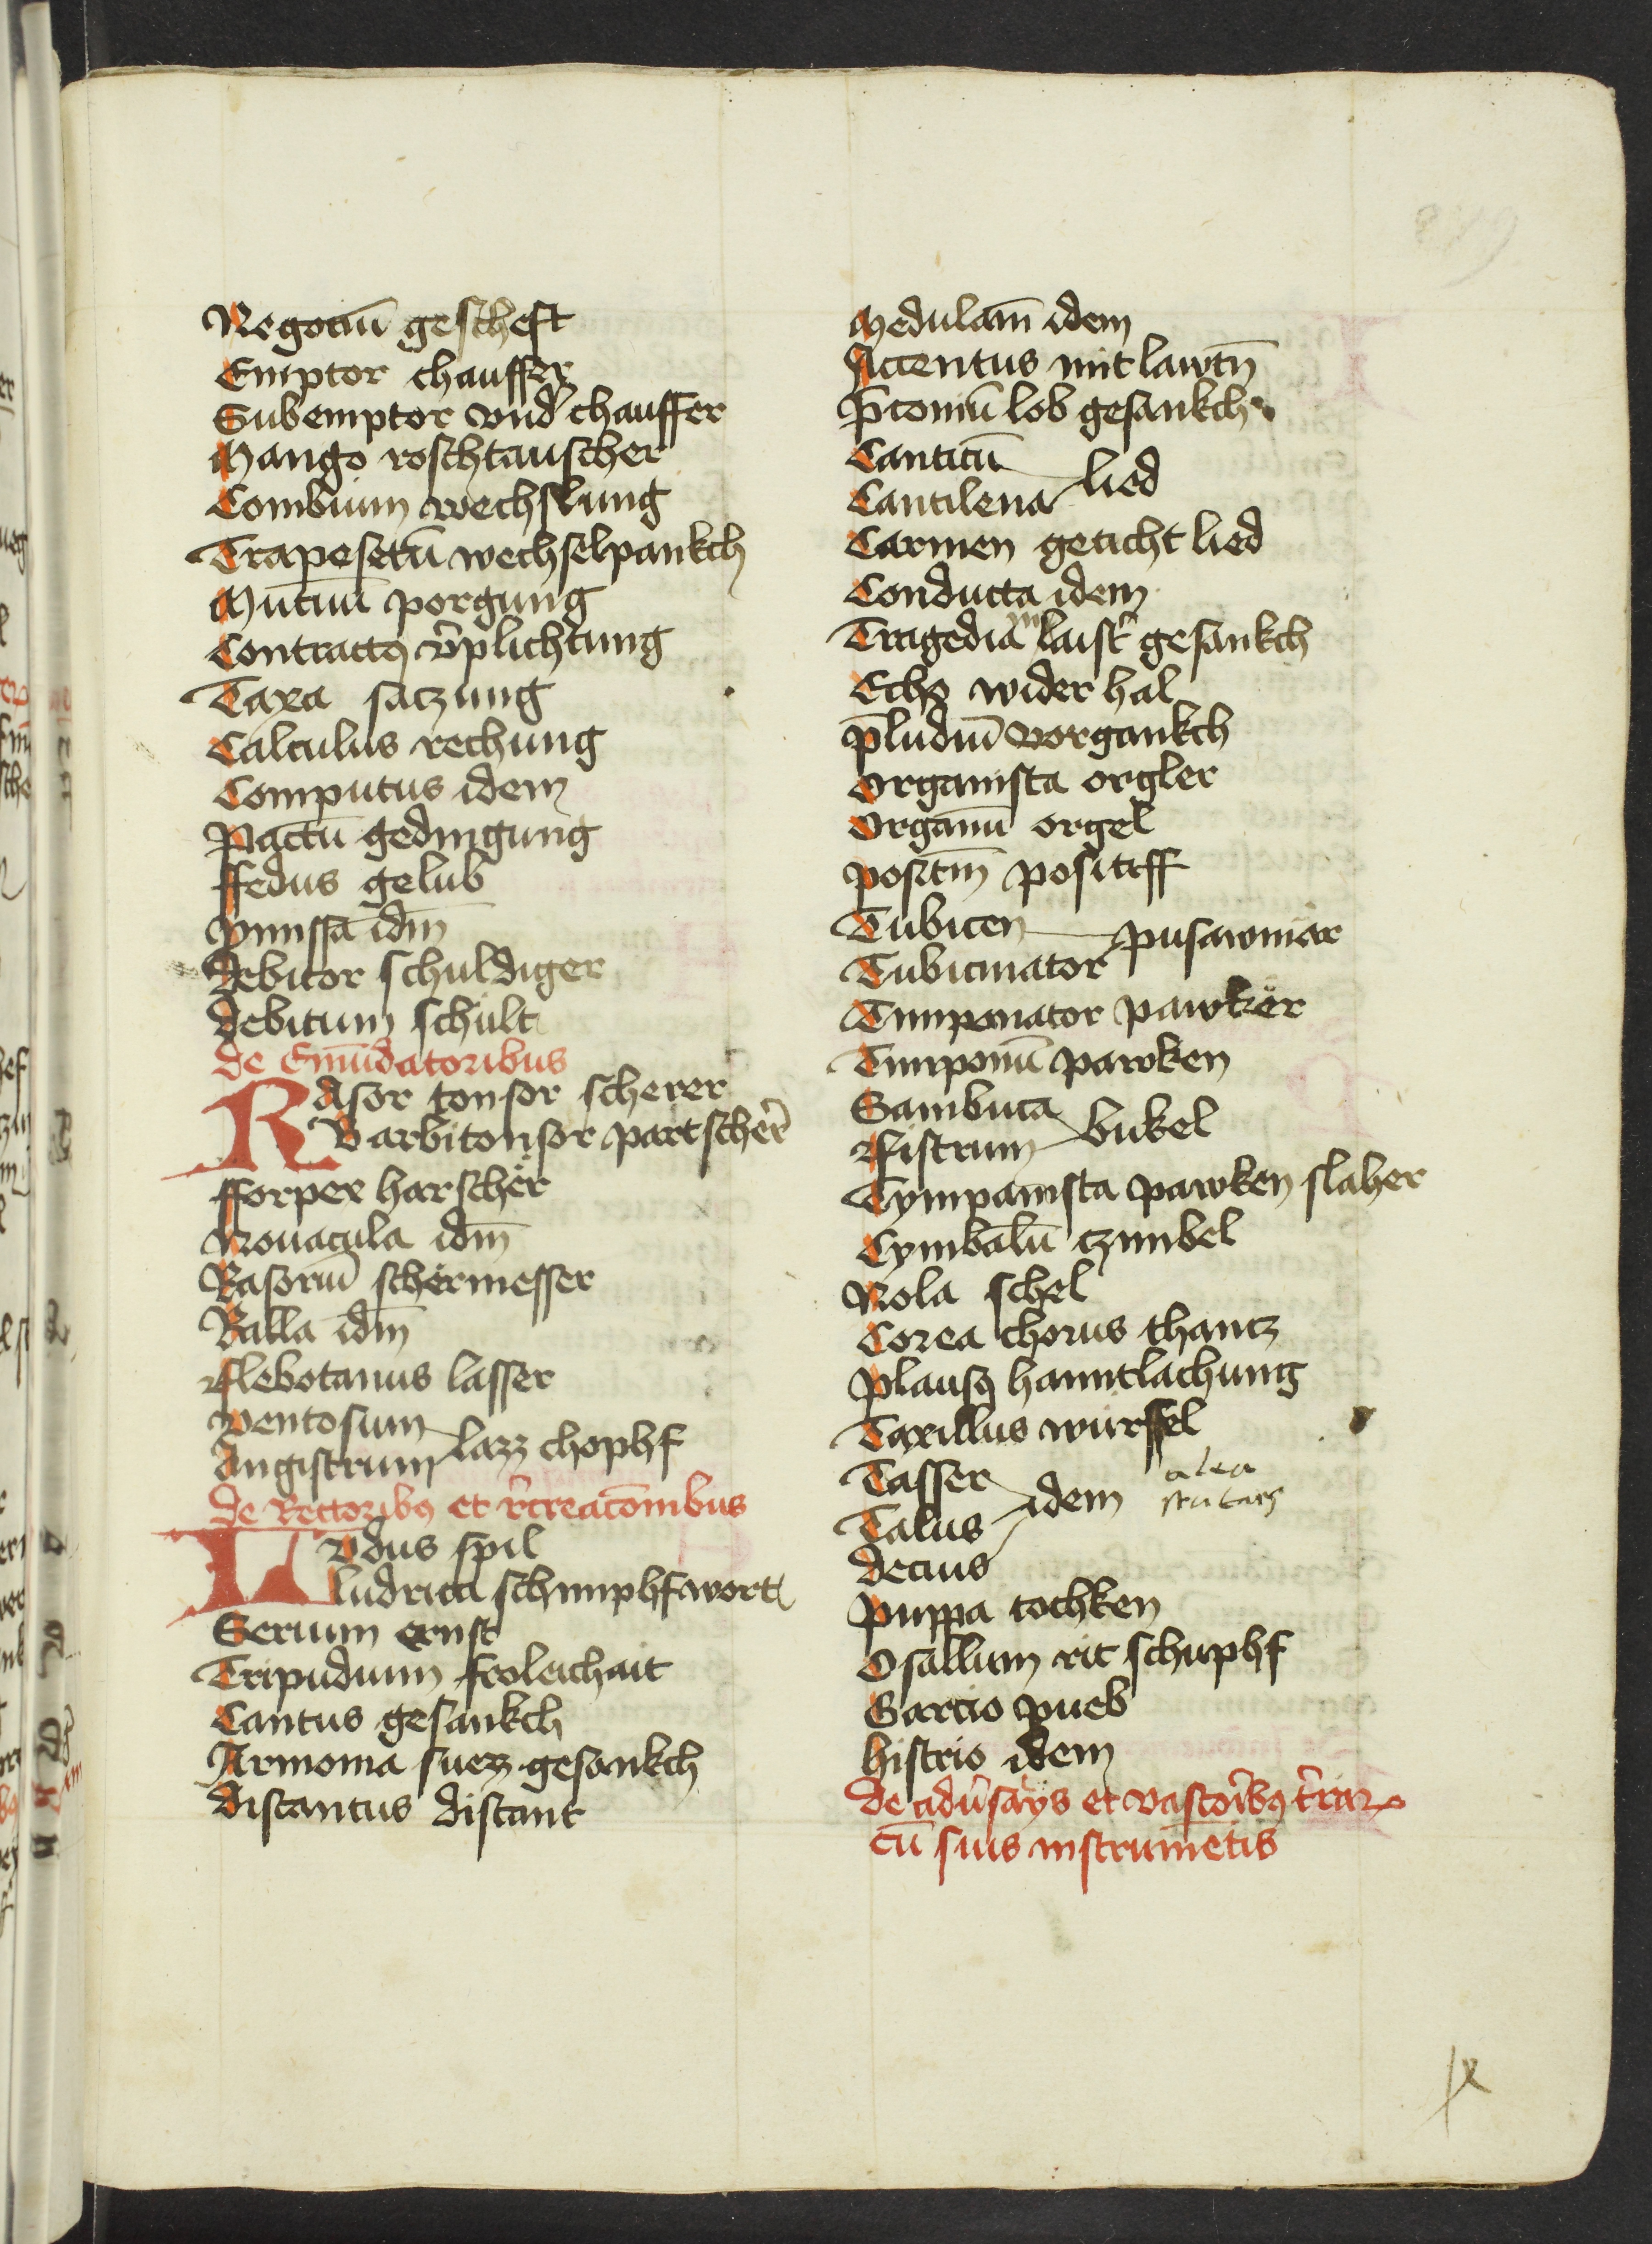 Negociū gescheft
Emptor chauffer
Subemptor vnd̛ chauffer
Mango roschtauscher
Combium wechslung
Trapesetū wechselpankch
Mutuū porgung
Contractꝰ v̛plichtung
Taxa satzung
Calculus rechung
Computus idem
Pactū gedingung
ffedus gelub
pmissa idm̄
Debitor schuldiger
Debitum schult
De Emūdatoribus
Rasor tonsor scherer
Barbitonsor partscher̛
fforpex harschër
Nouacula idm̄
Rasoriū schërmesser
Ralla idm̄
fflebotanus lasser
ventosum
Angistrum lazz chophf
De Rectoribꝰ et r̛creacōnibus
Lvdus spil
ludrica schimphfwort
Serium ernst
Tripudium froleichait
Cantus gesankch
Armonia suezz gesankch
Discantus discant
Medulam̄ idem
Accentus mit lawtn̄
p̄coniū lob gesankch
Canticū
Cantilena lied
Carmen geticht lied
Conducta idem
Tragedia laist̛ gesankch
Echo wider hal
p̄ludiū vorgankch
Organista orgler
Organū orgel
positiū positiff
Tubicen
Tubicinator pusawniär
Timpanator pawkër
Timponū pawken
Sambuca
Sistrum bukel
Tympanista pawken slaher
Cymbalū czimbel
Nola schel
Corea chorus thancz
plausꝰ hanntlachung
Taxillus würffel
Tasser
Talus idem alea
Decius
puppa tochken
Osallum rit schuphf
Garcio pueb
histrio idem
De adưsarys et vastoribꝰ t̛raꝝ
cū suis instrumētis